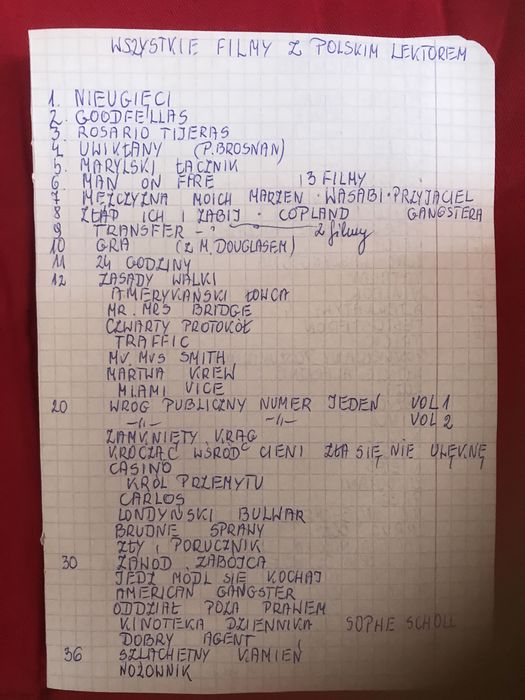 WSZYSTKIE FILMY Z POLSKIM LEKTOREM
1. NIEUGIĘCI
2. GOODFELLAS
3. ROSARIO TIJERAS
4 UWIKŁANY (P. BROSNAN)
5. MARYLSKI ŁACZNIK
6 MAN ON FIRE 13 FILMY
7 MĘŻCZYZNA MOICH MARZEN · WASABI · PRZYJACIEL
8 ZŁAD ICH I ZABIJ · COPLAND GANGSTERA
9 TRANSFER - 2 filmy
10 GRA (Z M. DOUGLASEM)
11 24 GODZINY
12 ZASADY WALKI
AMERYKAŃSKI ŁOWCA
MR. MRS BRIDGE
CZWARTY PROTOKÓŁ
TRAFFIC
MV. MVS SMITH
MARTWA KREW
MIAMI VICE
20 WRÓG PUBLICZNY NUMER JEDEN VOL 1
-11- -11- VOL 2
ZAMKNIETY KRĄG
KROCZĄC WŚRÓD CIENI ZŁA SIĘ NIE ULĘKNĘ
CASINO
KRÓL PRZEMYTU
CARLOS
LONDYŃSKI BULWAR
BRUDNE SPRAWY
ZŁY PORUCZNIK
30 ZAWÓD ZABÓJCA
JEDZ MÓDL SIĘ KOCHAJ
AMERICAN GANGSTER
ODDZIAŁ POZA PRAWEM
KINOTEKA DZIENNIKA SOPHE SCHOLL
DOBRY AGENT
36 SZLACHETNY KAMIEŃ
NOŻOWNIK